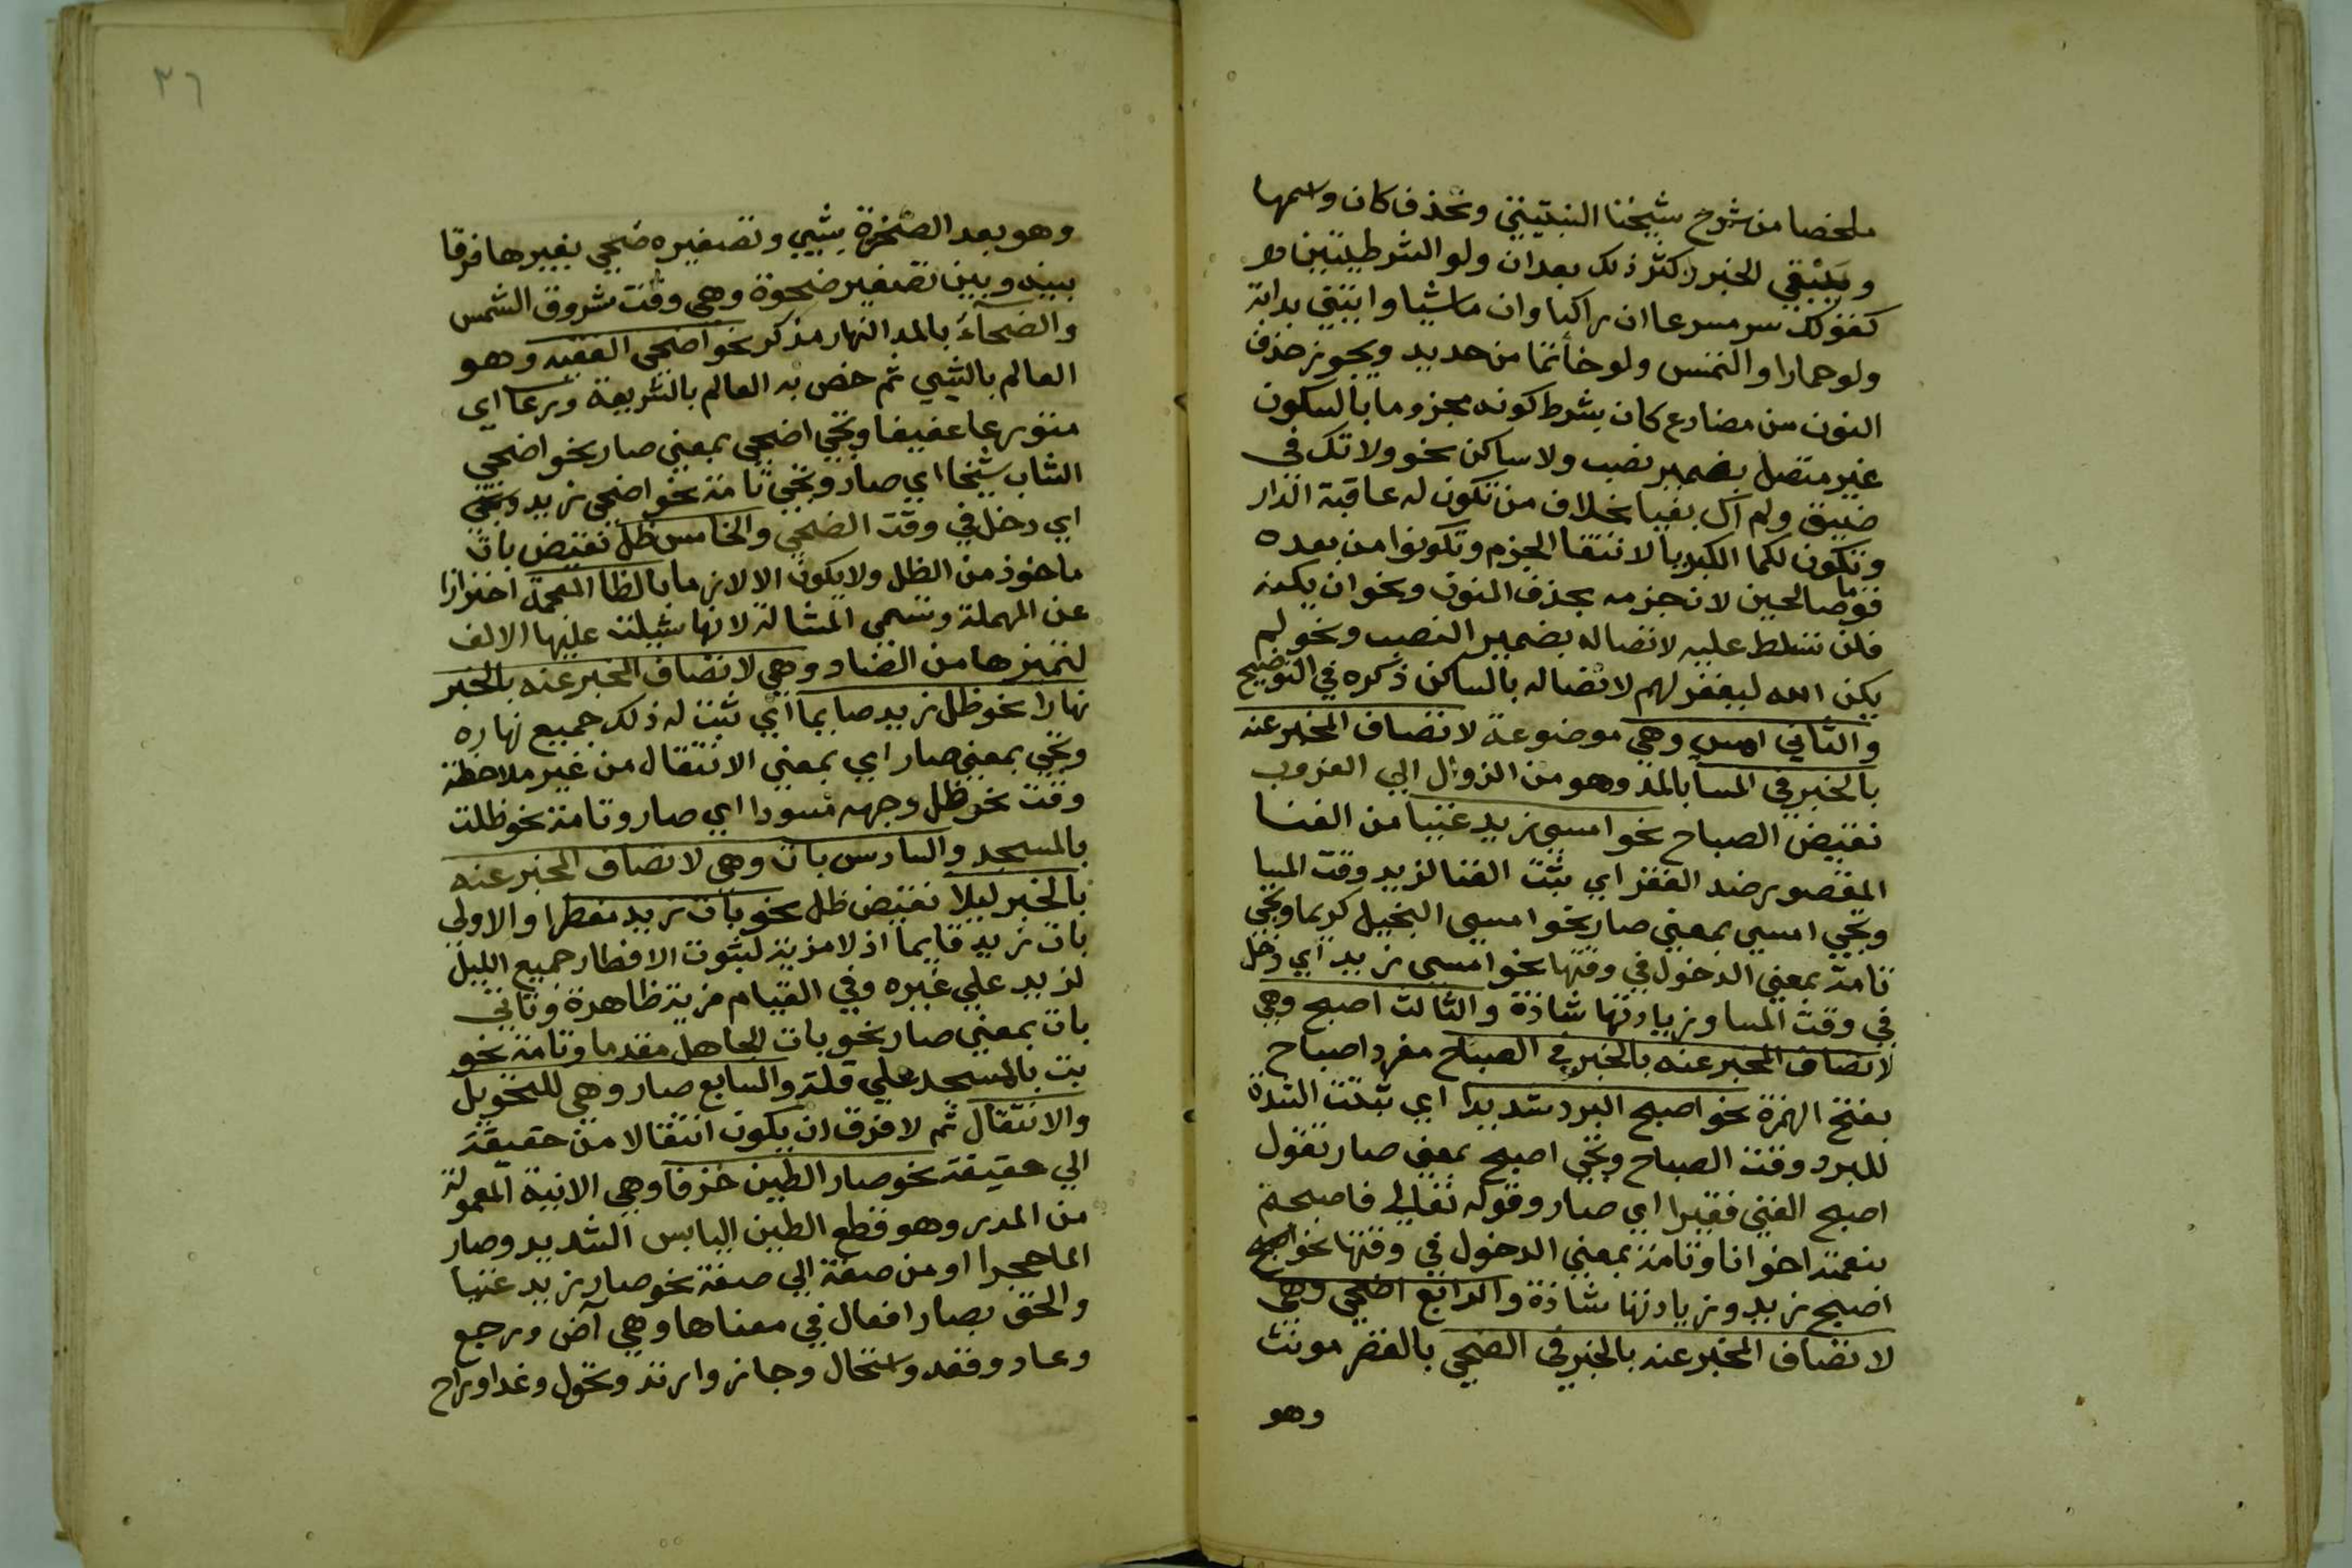 ملخصا من شرح شيخنا النبتيتي وتحذف كان واسمها
ويبقي الخبر وكثر ذلك بعد ان ولو الشرطيتين
كقولك سر مسرعا ان راكبا وان ماشيا وايتني بدابة
ولو حمارا والتمس ولو خاتما من حديد ويجوز حذف
النون من مضارع كان بشرط كونه مجزوما بالسكون
غير متصل بضمير نصب ولا ساكن نحو ولا تك في
ضيق ولم اك بغيا بخلاف من تكون له عاقبة الدار
وتكون لكما الكبريا لانتفا الجزم وتكونوا من بعده
قوما صالحين لان جزمه بحذف النون ونحو ان يكنه
فلن تسلط عليه لاتصاله بضمير النصب ونحو لم
يكن الله ليغفر لهم لاتصاله بالساكن ذكره في التوضيح
والثاني امسي وهي موضوعة لاتصاف المخبر عنه
بالخبر في المسا بالمد وهو من الزوال الي الغروب
نقيض الصباح نحو امسي زيد غنيا من الغنا
المقصور ضد الفقر اي ثبت الغنا لزيد وقت المسا
ويجي امسي بمعني صار نحو امسي البخيل كريما ويجي
تامة بمعني الدخول في وقتها نحو امسي زيد اي دخل
في وقت المسا وزيادتها شاذة والثالث اصبح وهي
لاتصاف المخبر عنه بالخبر في الصباح مفرد اصباح
بفتح الهمزة نحو اصبح البرد شديدا اي ثبتت الشدة
للبرد وقت الصباح ويجي اصبح بمعني صار تقول
اصبح الغني فقيرا اي صار وقوله تعالي فاصبحتم
بنعمته اخوانا وتامة بمعني الدخول في وقتها نحو
اصبح زيد وزيادتها شاذة والرابع اضحي وهي
لاتصاف المخبر عنه بالخبر في الضحي بالقصر مونث
وهو
٣٦
وهو بعد الضحوة بشيي وتصغيره ضحي بغير ها فرقا
بينه وبين تصغير ضحوة وهي وقت شروق الشمس
والضحاء بالمد النهار مذكر نحو اضحي الفقيه وهو
العالم بالشيي ثم خص به العالم بالشريعة ورعا اي
متورعا عفيفا ويجي اضحي بمعني صار نحو اضحي
الشاب شيخا اي صار ويجي تامة نحو اضحي زيد
اي دخل في وقت الضحي والخامس ظل نقيض بات
ماخوذ من الظل ولا يكون الا لازما بالظا المعجمة احترازا
عن المهملة وتسمي المشالة لانها شيلت عليها الالف
لتميزها من الضاد وهي لاتصاف المخبر عنه بالخبر
نهارا نحو ظل زيد صايما اي ثبت له ذلك جميع نهاره
ويجي بمعني صار اي بمعني الانتقال من غير ملاحظة
وقت نحو ظل وجهه مسودا اي صار وتامة نحو ظللت
بالمسجد والسادس بات وهي لاتصاف المخبر عنه
بالخبر ليلا نقيض ظل نحو بات زيد مفطرا والاولي
بات زيد قايما اذ لا مزية لثبوت الافطار جميع الليل
لزيد علي غيره وفي القيام مزية ظاهرة وتاتي
بات بمعني صار نحو بات الجاهل مقدما وتامة نحو
بت بالمسجد علي قلة والسابع صار وهي للتحويل
والانتقال ثم لا فرق ان يكون انتقالا من حقيقة
الي حقيقة نحو صار الطين خزفا وهي الانية المعمولة
من المدر وهو قطع الطين اليابس الشديد وصار
الما حجرا او من صفة الي صفة نحو صار زيد غنيا
والحق بصار افعال في معناها وهي آض ورجع
وعاد وقعد واستحال وحار وارتد وتحول وغدا وراح